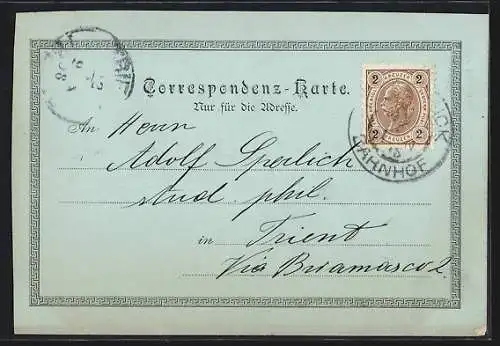 Correspondenz-Karte.
Nur für die Adresse.
An Herrn
Adolf Sperlich
stud. phil.
in Trient
Via Bramasco 2
2 KREUZER 2
2 2
BAHNHOF